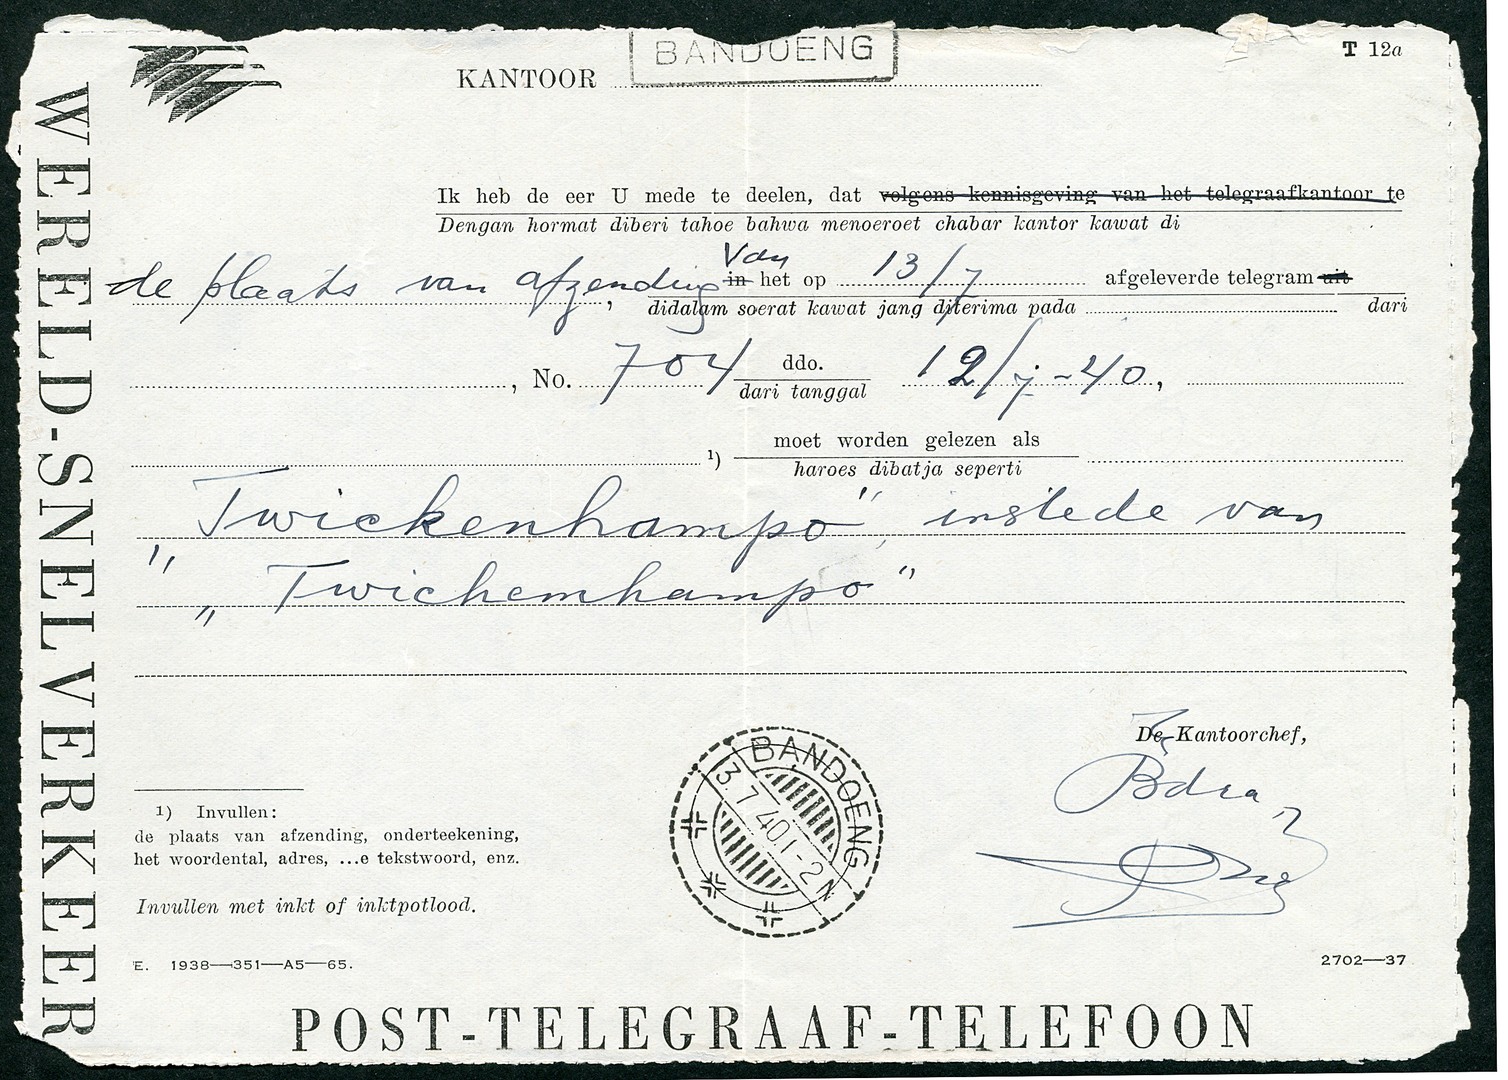 WERELD-SNELVERKEER
T 12a
KANTOOR BANDOENG
Ik heb de eer U mede te deelen, dat volgens kennisgeving van het telegraafkantoor te
Dengan hormat diberi tahoe bahwa menoeroet chabar kantor kawat di
Van
de plaats van afzending, in het op 13/7 afgeleverde telegram uit
didalam soerat kawat jang diterima pada dari
, No. 704 ddo. 12/7-40,
dari tanggal
1) moet worden gelezen als
haroes dibatja seperti
„Twickenhampo" instede van
„Twichemhampo"
De Kantoorchef,
BANDOENG
3 7 40.1-2N
1) Invullen:
de plaats van afzending, onderteekening,
het woordental, adres, ...e tekstwoord, enz.
Invullen met inkt of inktpotlood.
E. 1938—351—A5—65.
2702—37
POST-TELEGRAAF-TELEFOON